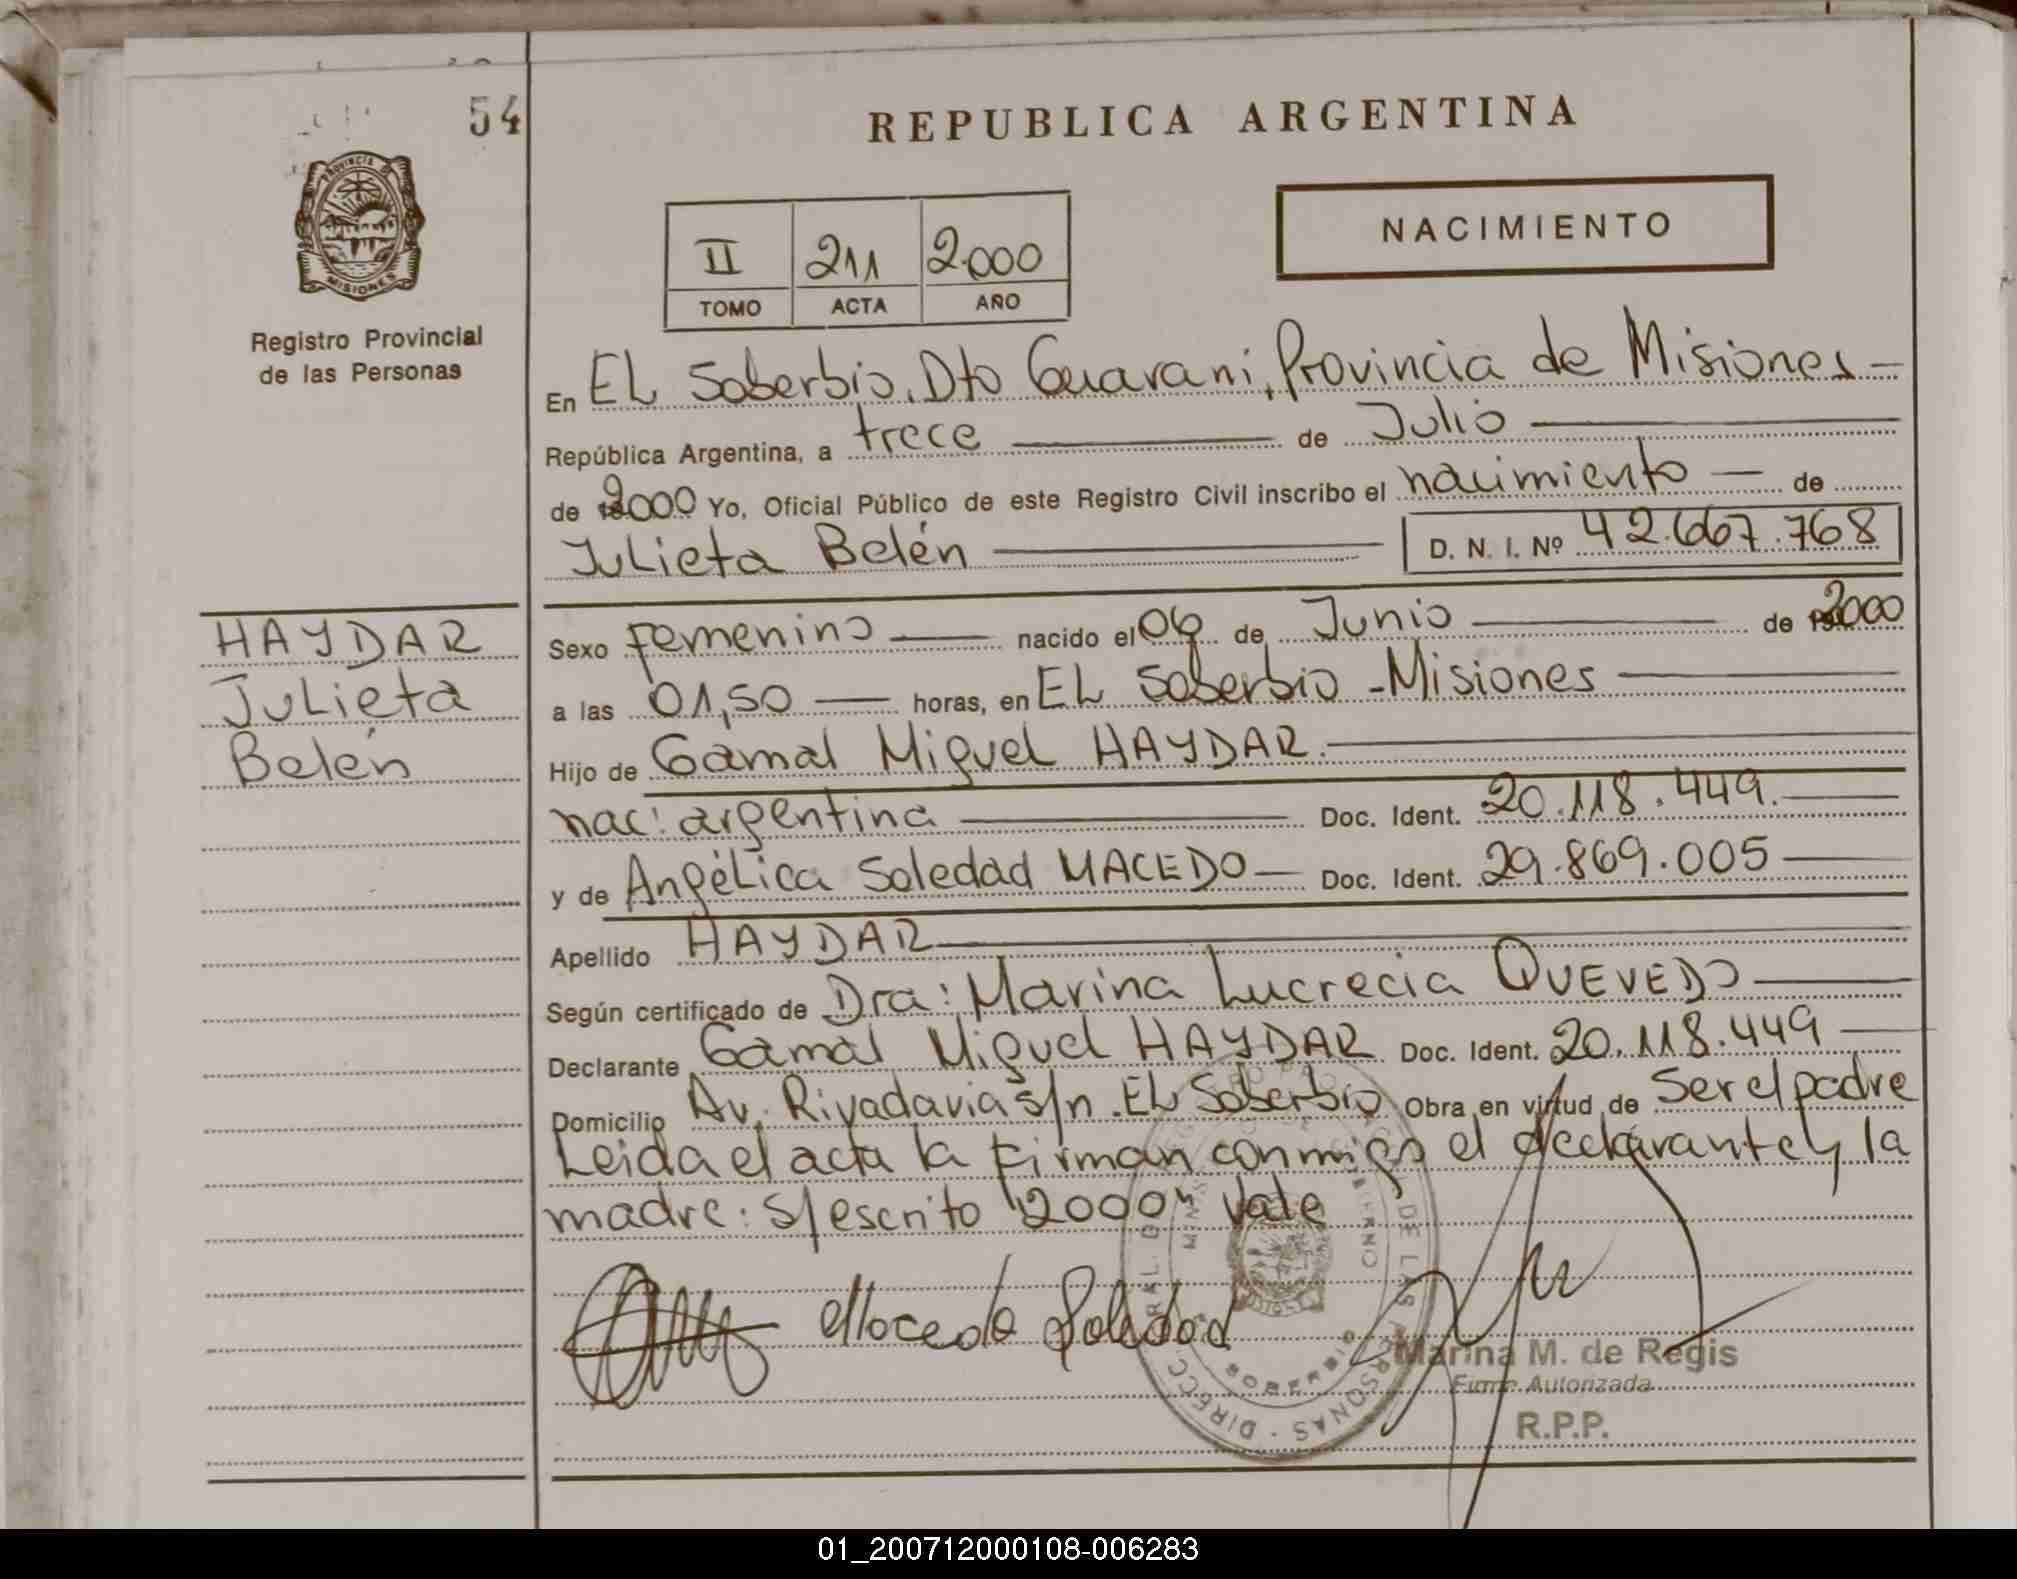 54
REPUBLICA ARGENTINA
NACIMIENTO
II 211 2.000
TOMO ACTA AÑO
PROVINCIA DE
MISIONES
Registro Provincial
de las Personas
En EL Soberbio, Dto Guaraní, Provincia de Misiones —
República Argentina, a trece — de Julio —
de 2000 Yo, Oficial Público de este Registro Civil inscribo el nacimiento — de
Julieta Belén — D. N. I. Nº 42.667.768
HAYDAR
Julieta
Belén
Sexo femenino — nacido el 06 de Junio — de 2000
a las 01,50 — horas, en EL Soberbio - Misiones —
Hijo de Gamal Miguel HAYDAR. —
nac: argentina — Doc. Ident. 20.118.449. —
y de Angélica Soledad MACEDO — Doc. Ident. 29.869.005 —
Apellido HAYDAR —
Según certificado de Dra: Marina Lucrecia QUEVEDO —
Declarante Gamal Miguel HAYDAR Doc. Ident. 20.118.449 —
Domicilio Av. Rivadavia s/n. EL Soberbio Obra en virtud de Ser el padre
Leida el acta la firman conmigo el declarante y la
madre: s/escrito "2000" Vale
Macedo Soledad
SOBERBIO
Marina M. de Regis
Firma Autorizada
R.P.P.
01_200712000108-006283